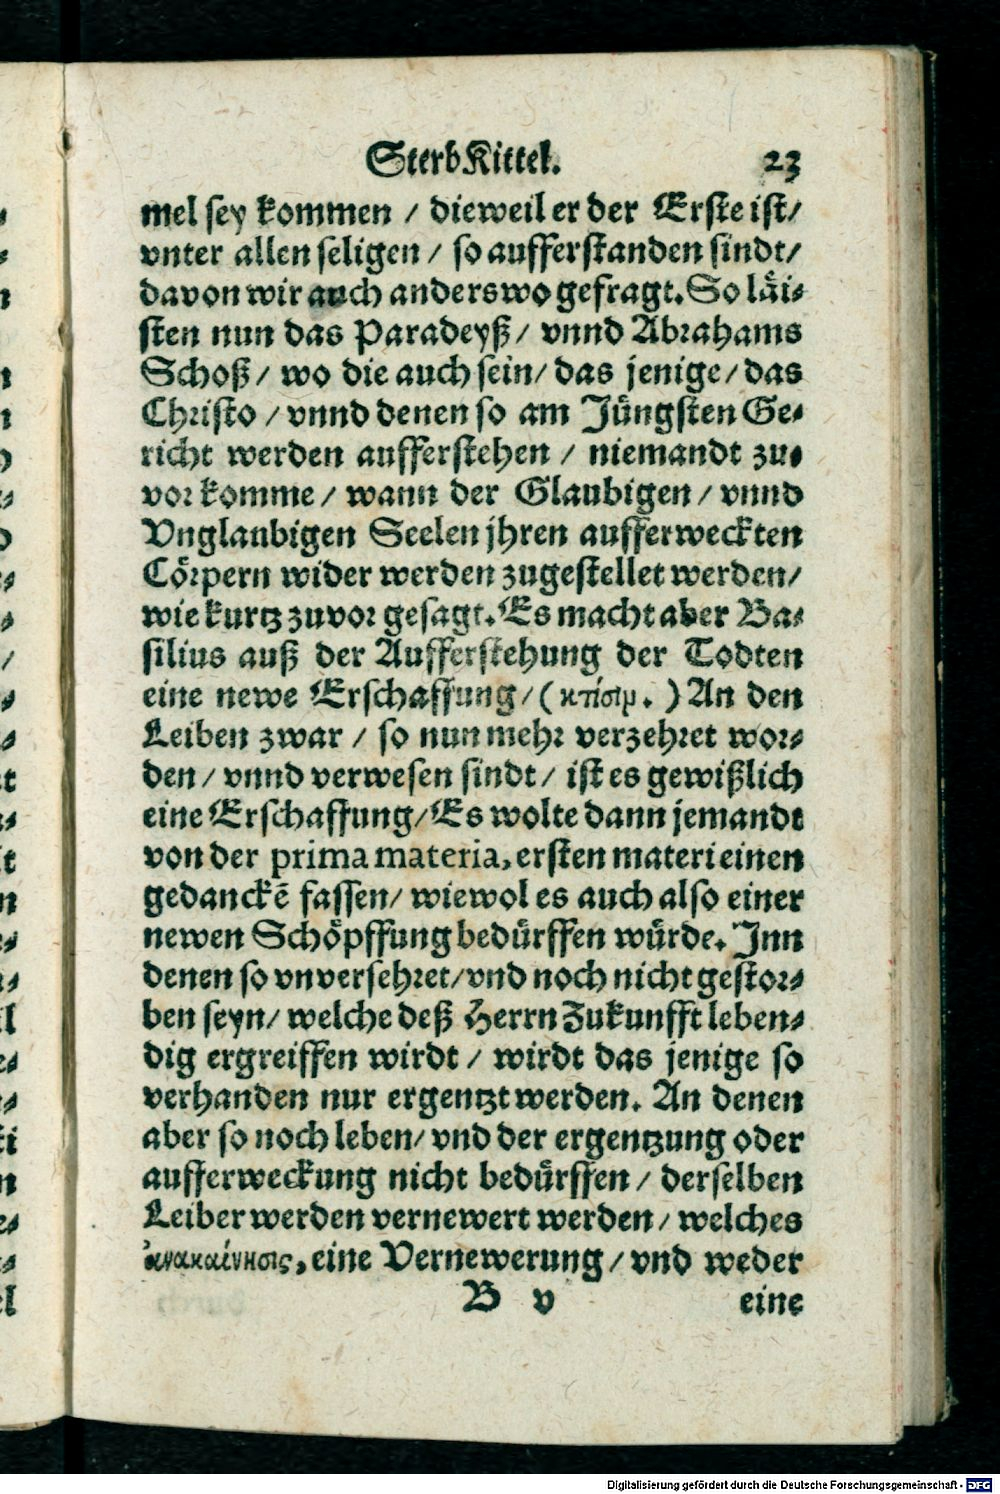 SterbKittel. 23
mel sey kommen / dieweil er der Erste ist/
vnter allen seligen / so aufferstanden sindt/
davon wir auch anderswo gefragt. So läi-
sten nun das Paradeyß/ vnnd Abrahams
Schoß/ wo die auch sein/ das jenige/ das
Christo / vnnd denen so am Jüngsten Ge-
richt werden aufferstehen / niemandt zu-
vor komme/ wann der Glaubigen/ vnnd
Vnglaubigen Seelen jhren aufferweckten
Cörpern wider werden zugestellet werden/
wie kurtz zuvor gesagt. Es macht aber Ba-
silius auß der Aufferstehung der Todten
eine newe Erschaffung/ (κτίσιμ. ) An den
Leiben zwar / so nun mehr verzehret wor-
den/ vnnd verwesen sindt/ ist es gewißlich
eine Erschaffung/ Es wolte dann jemandt
von der prima materia, ersten materi einen
gedanckē fassen/ wiewol es auch also einer
newen Schöpffung bedürffen würde. Jnn
denen so vnversehret/ vnd noch nicht gestor-
ben seyn/ welche deß Herrn Zukunfft leben-
dig ergreiffen wirdt / wirdt das jenige so
verhanden nur ergentzt werden. An denen
aber so noch leben/ vnd der ergentzung oder
aufferweckung nicht bedürffen / derselben
Leiber werden vernewert werden / welches
ἀνακαίνησις, eine Vernewerung / vnd weder
B v eine
Digitalisierung gefördert durch die Deutsche Forschungsgemeinschaft - DFG